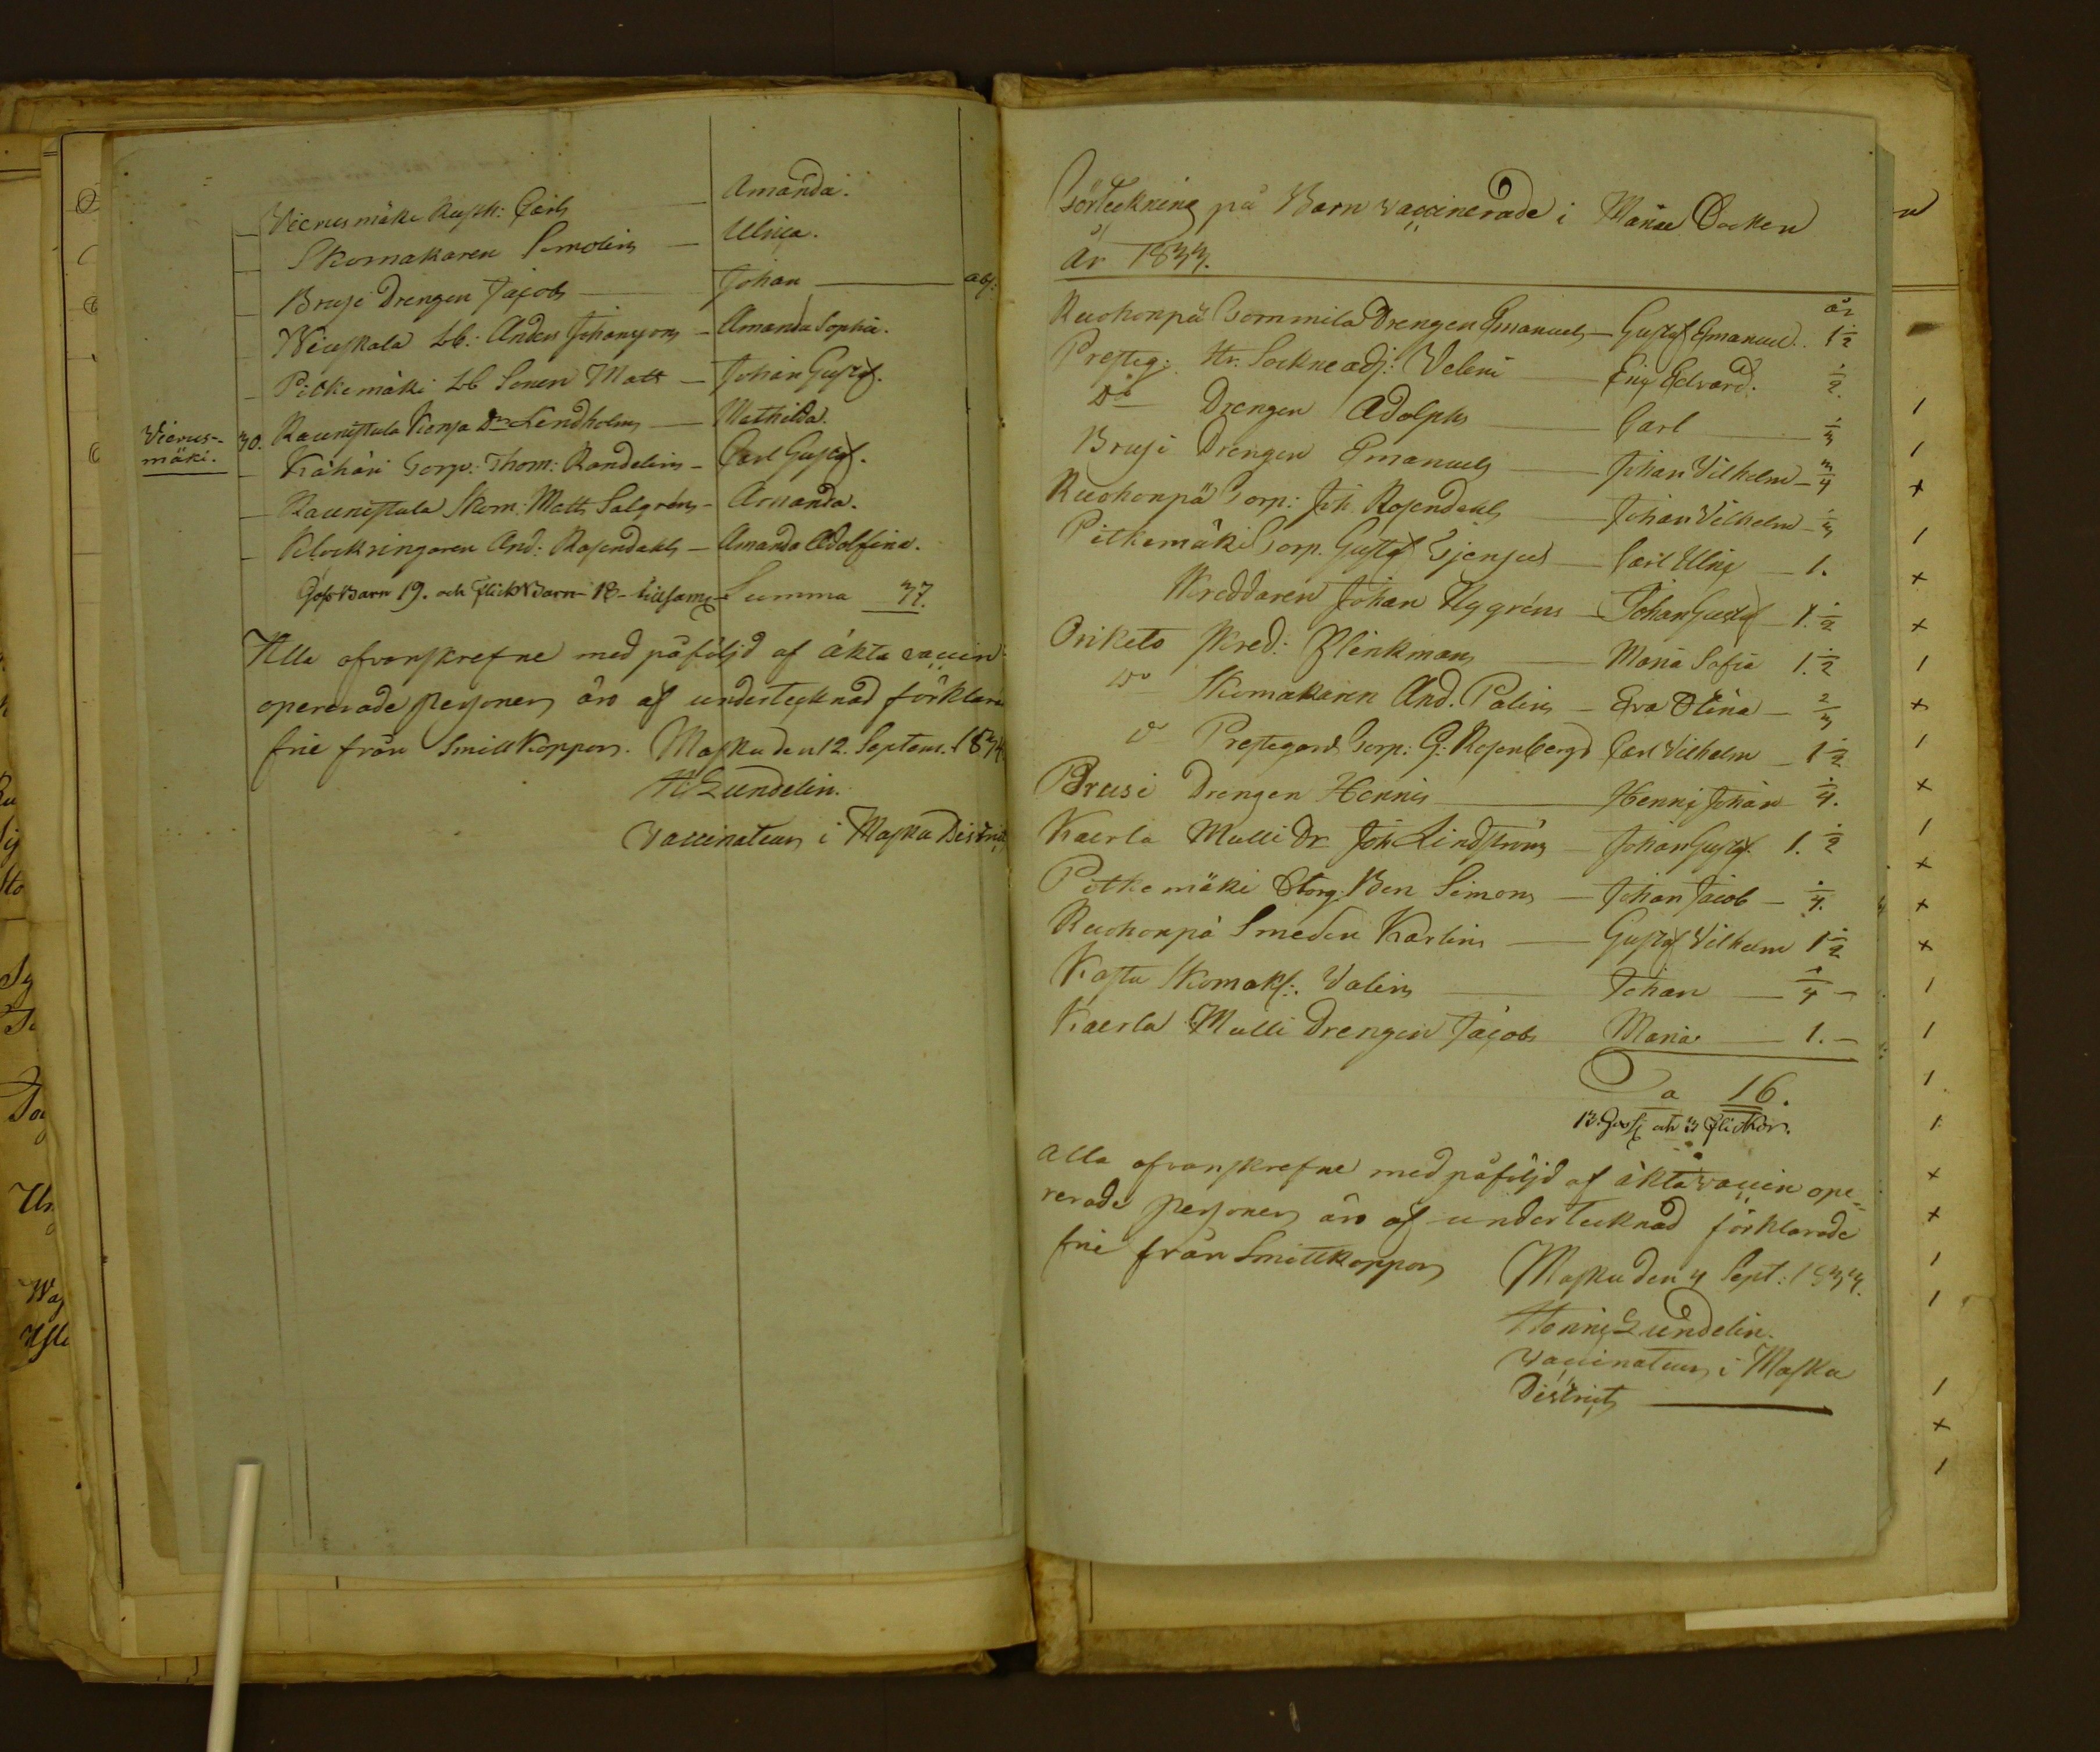 Vierusmäki Rusth: Carls — Amanda.
Skomakaren Simolins — Ulrica.
Brusi Drengen Jacobs — Johan — abs:
Wiuskala Lb: Anders Johanssons — Amanda Sophia.
Pitkemäki Lb Sonen Matt — Johan Gustaf.
Vierus-
mäki.
30. Raunistula Kersa Dr Lindholms — Mathilda.
Kähäri Torp: Thom: Randelins — Carl Gustaf.
Raunistula Skom: Matts Salgréns — Amanda.
Klockringaren And: Rosendahls — Amanda Adolfina.
Goss Barn 19. och Flick Barn 18 - tillsams Summa 37.
Alla ofvanskrefne med påföljd af äkta vaccin
opererade personer äro af undertecknad förklara
frie från Smittkoppor. Masku den 12. Septem. 1834
H Lundelin.
Vaccinateur i Masku District
Förteckning på Barn vaccinerade i Mariæ Socken
År 1833.
år
Ruohonpä Tommila Drengen Emanuels — Gustaf Emanuel. 1 1/2
Presteg: Hr. Sockneadj: Veleni — Eric Edvard. 1/2.
Do Drengen Adolphs — Carl — 1/3
Brusi Drengen Emanuels — Johan Vilhelm — 3/4
Ruohonpä Torp: Joh. Rosendahls — Johan Vilhelm — 1/3
Pitkemäki Torp. Gustaf — Carl Ulric — 1.
Skreddaren Johan Nygréns — Johan Gustaf — 1. 1/2
Orikets Skred: Flinkmans — Maria Sofia 1. 1/2
Do Skomakaren And. Palins — Eva Stina — 2/3
Do Prestegårds Torp: G: Rosenbergs Carl Vilhelm — 1 1/2
Brusi Drengen Hennis — Henric Johan 1/4.
Kaerla Mulli Dr Joh Lindströms — Johan Gustaf. 1. 1/2
Pitkemäki Storg: Ben Simons — Johan Jacob — 1/4.
Ruohonpä Smeden Karlins — Gustaf Vilhelm 1 1/2
Kastu Skomak: Valins — Johan — 1/4 —
Kaerla Mulli Drengen Jacobs Maria — 1. —
Sa 16.
13. Goss: och 3 Flickor.
Alla ofvanskrefne med påföljd af äkta vaccin ope=
rerade personer äro af undertecknad förklarade
frie från Smittkoppor Masku den 4 Sept: 1834.
Henric Lundelin.
Vaccinateur i Masku
District —